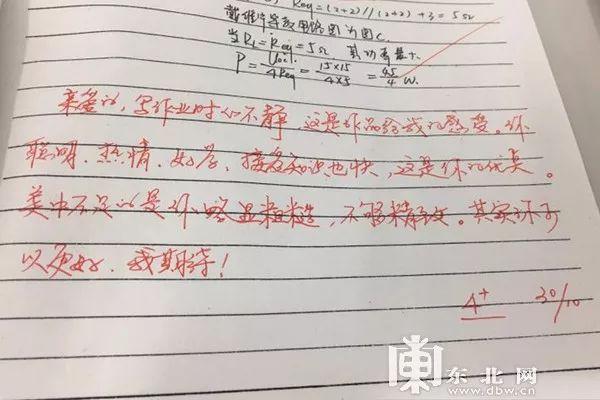 Req=(2+2)//(2+2)+3=5Ω
戴维宁等效电路图为图c.
当RL=Req=5Ω 其功率最大.
P=Uoc²/4Req=15×15/4×5=45/4 W.
亲爱的,写作业时心不静,这是作品给我的感受。你
聪明、热情、好学、接受知识也快,这是你的优点。
美中不足的是你略显粗糙,不够精致。其实你可
以更好,我期待!
4+ 30/10
東北网
www.dbw.cn